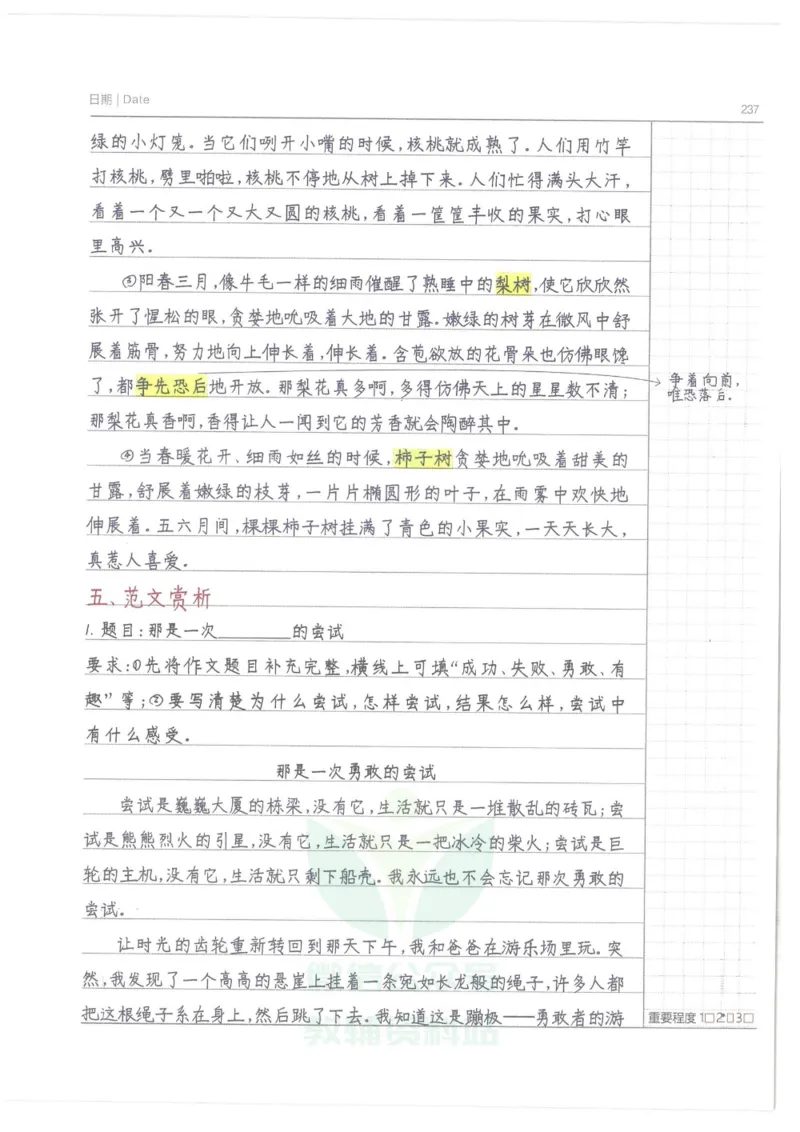 日期 | Date
237
绿的小灯笼。当它们咧开小嘴的时候,核桃就成熟了。人们用竹竿
打核桃,劈里啪啦,核桃不停地从树上掉下来。人们忙得满头大汗,
看着一个又一个又大又圆的核桃,看着一筐筐丰收的果实,打心眼
里高兴。
③阳春三月,像牛毛一样的细雨催醒了熟睡中的梨树,使它欣欣然
张开了惺松的眼,贪婪地吮吸着大地的甘露。嫩绿的树芽在微风中舒
展着筋骨,努力地向上伸长着,伸长着。含苞欲放的花骨朵也仿佛眼馋
了,都争先恐后地开放。那梨花真多啊,多得仿佛天上的星星数不清;
争着向前,
唯恐落后。
那梨花真香啊,香得让人一闻到它的芳香就会陶醉其中。
④当春暖花开、细雨如丝的时候,柿子树贪婪地吮吸着甜美的
甘露,舒展着嫩绿的枝芽,一片片椭圆形的叶子,在雨雾中欢快地
伸展着。五六月间,棵棵柿子树挂满了青色的小果实,一天天长大,
真惹人喜爱。
五、范文赏析
1. 题目:那是一次________的尝试
要求:①先将作文题目补充完整,横线上可填“成功、失败、勇敢、有
趣”等;②要写清楚为什么尝试,怎样尝试,结果怎么样,尝试中
有什么感受。
那是一次勇敢的尝试
尝试是巍巍大厦的栋梁,没有它,生活就只是一堆散乱的砖瓦;尝
试是熊熊烈火的引星,没有它,生活就只是一把冰冷的柴火;尝试是巨
轮的主机,没有它,生活就只剩下船壳。我永远也不会忘记那次勇敢的
尝试。
让时光的齿轮重新转回到那天下午,我和爸爸在游乐场里玩。突
然,我发现了一个高高的悬崖上挂着一条宛如长龙般的绳子,许多人都
把这根绳子系在身上,然后跳了下去。我知道这是蹦极——勇敢者的游
重要程度 1□2□3□
教辅资料站